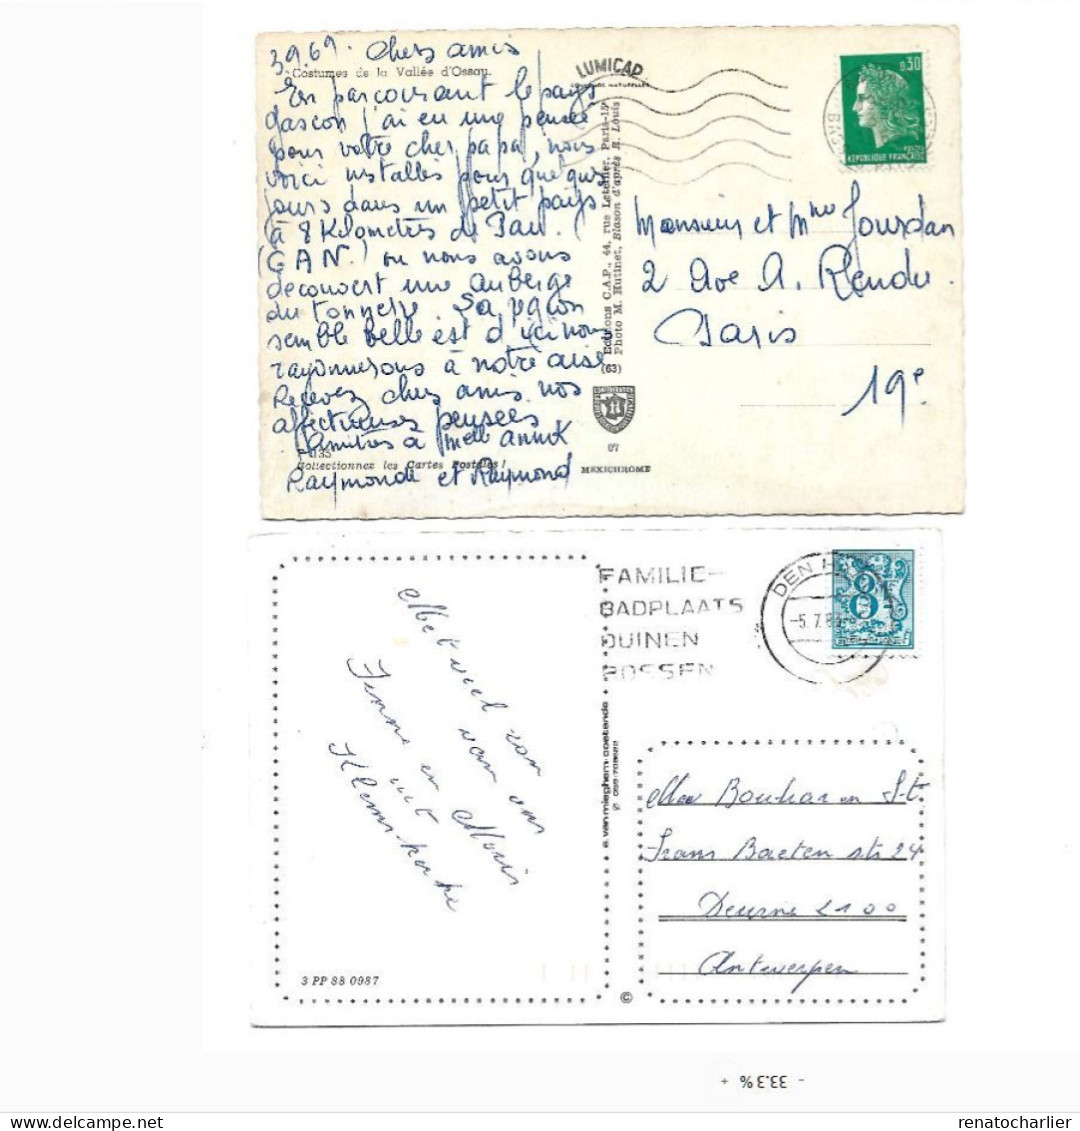 3.9.69. Chers amis
Costumes de la Vallée d'Ossau.
En parcourant le pays
gascon j'ai eu une pensée
pour votre cher papa, nous
voici installés pour quelques
jours dans un petit pays
à 8 Kilomètres de Pau.
(GAN.) ou nous avons
découvert une auberge
du tonnerre. Sa
semble belle est d'ici nous
rayonnerons à notre aise
Recevez chers amis nos
affectueuses pensées
Amitiés à Melle Annik
Collectionnez les Cartes Postales!
Raymonde et Raymond
LUMICAP
Editions C.A.P., 44, rue Letellier, Paris-15e
Photo M. Hutinet, Blason d'après R. Louis
(63)
07
MEXICHROME
0,30
POSTES
REPUBLIQUE FRANÇAISE
Monsieur et Mme Jourdan
2 Ave A. Rendu
Paris
19e
FAMILIE-
BADPLAATS
DUINEN
BOSSEN
DEN H
-5.7.8
8
Met veel zon
van ons
en Moris
uit
Klemskerke
a. van mieghem-oostende
3 PP 88 0987
©
Frans Baeten str 24
Deurne 2100
Antwerpen
- 33.3% +
renatocharlier